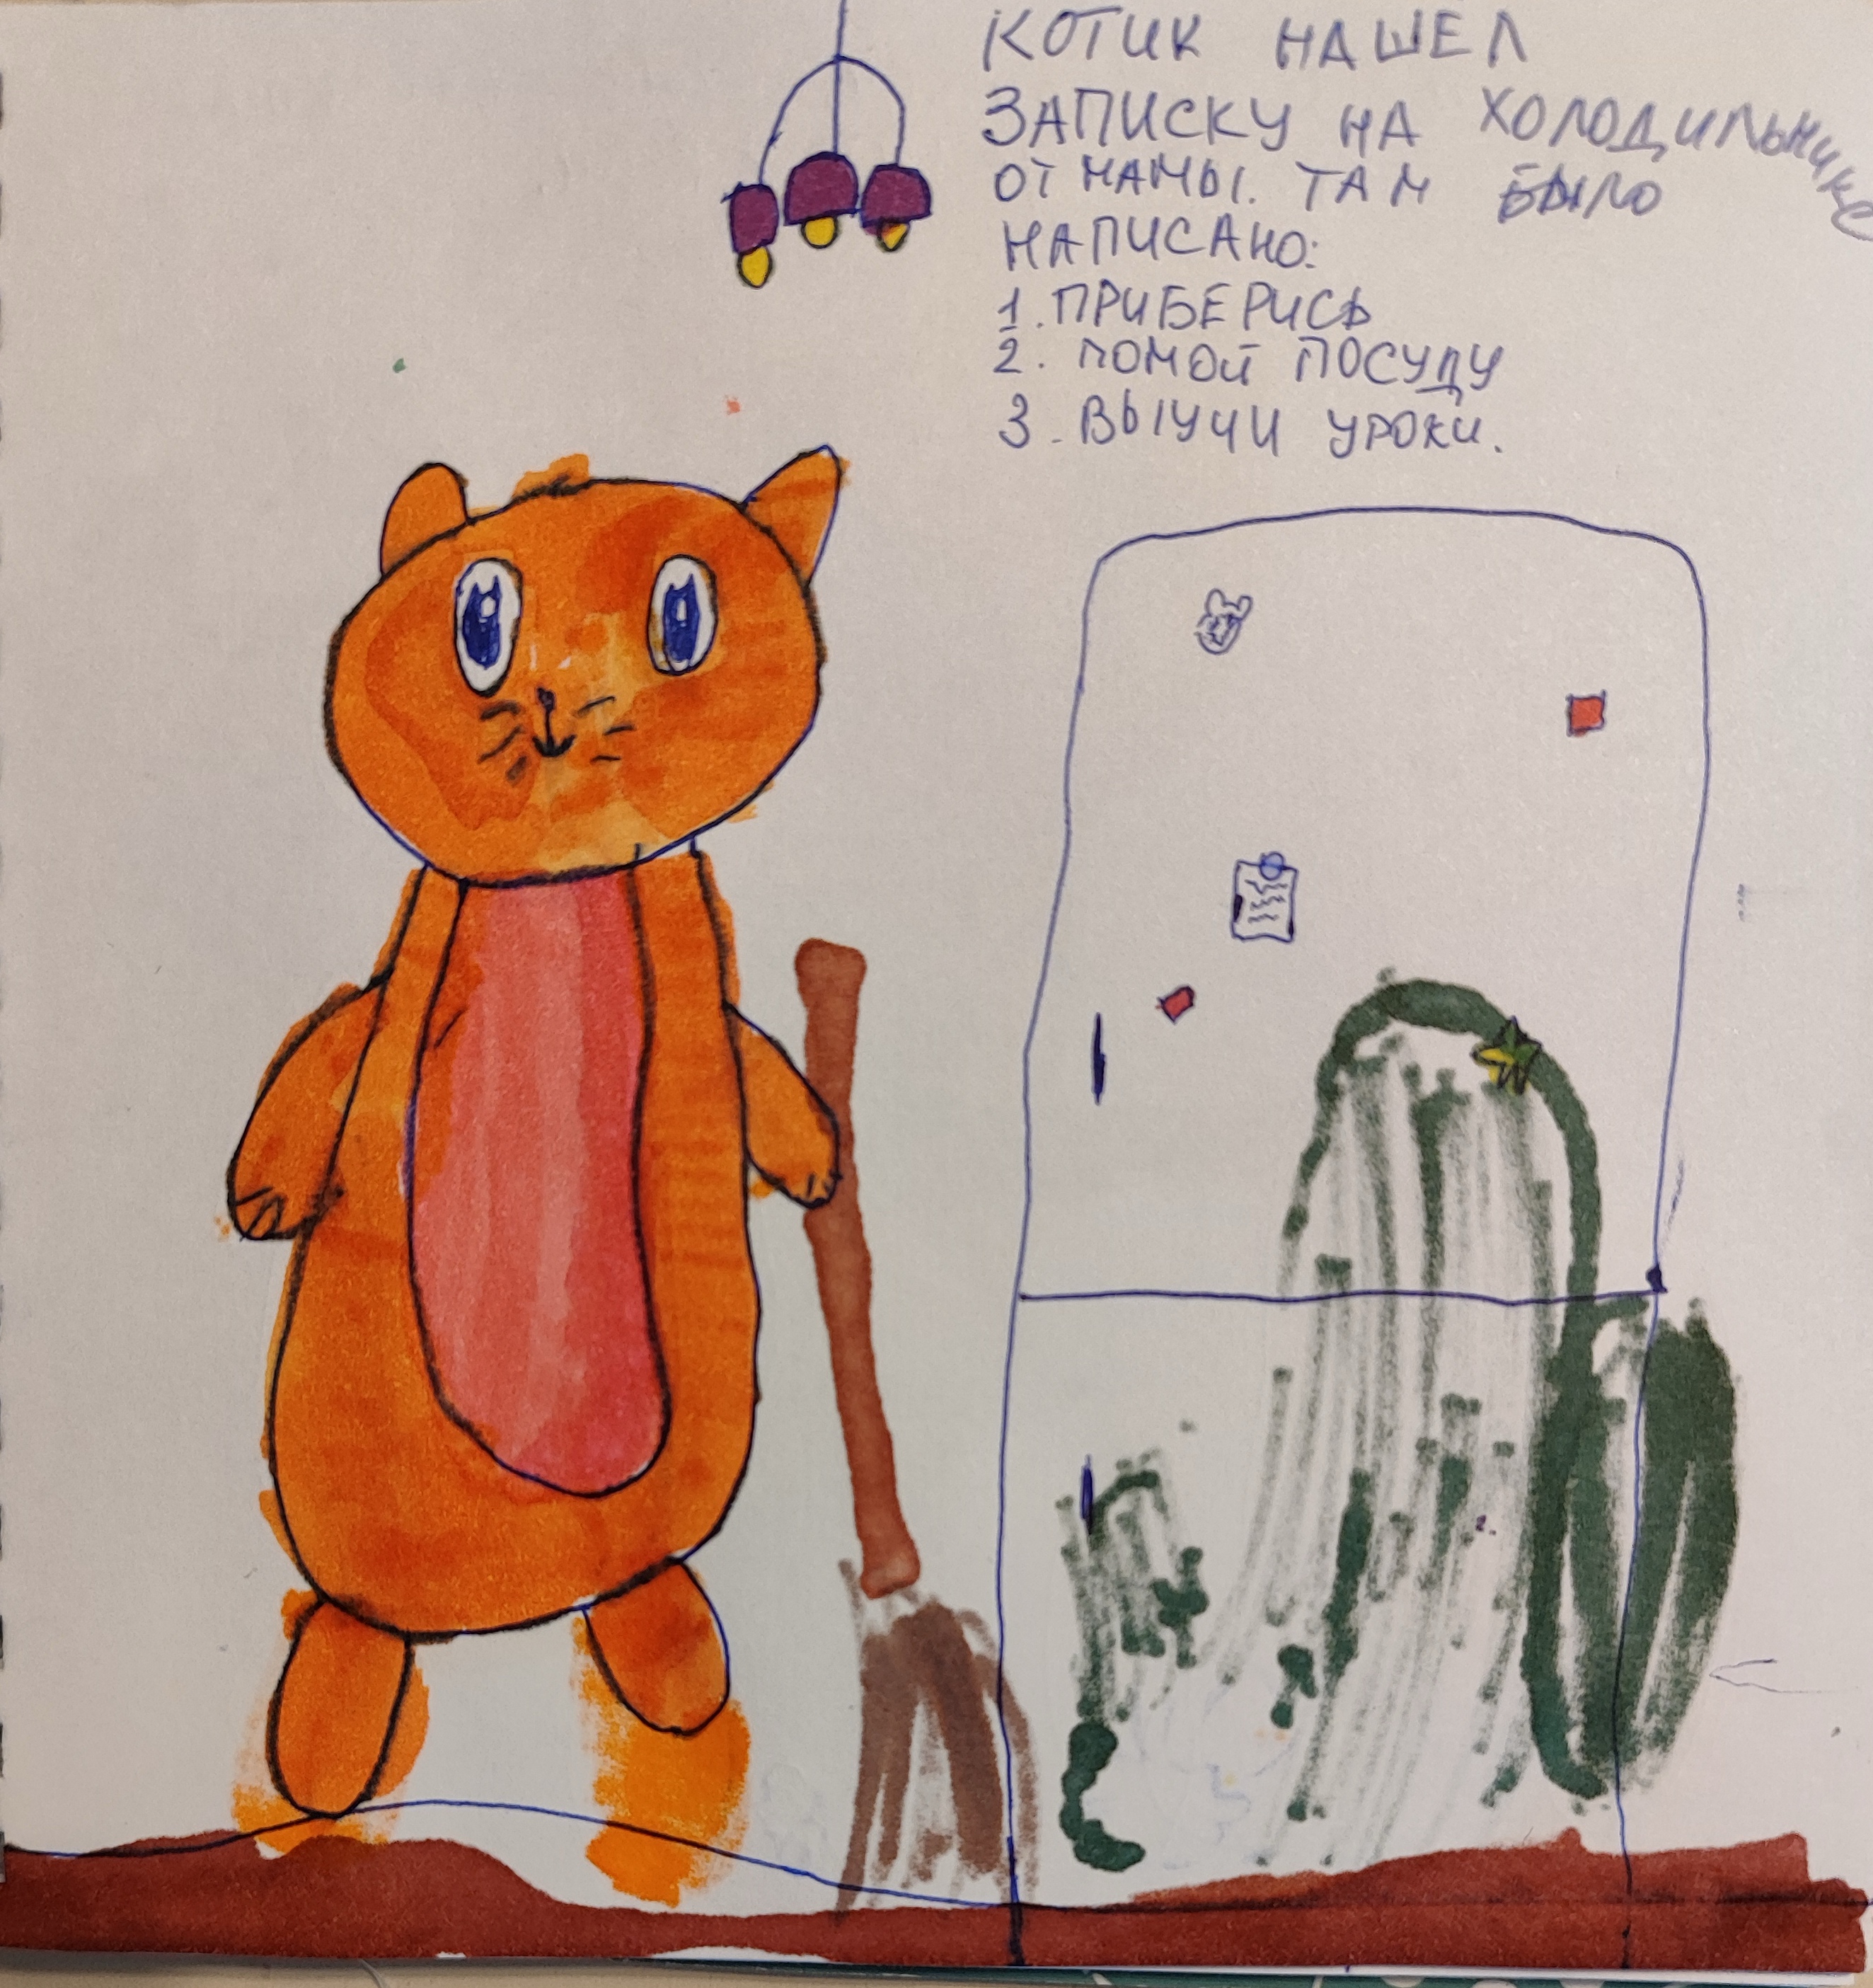 КОТИК НАШЕЛ
ЗАПИСКУ НА ХОЛОДИЛЬНИКЕ
ОТ МАМЫ. ТАМ БЫЛО
НАПИСАНО:
1. ПРИБЕРИСЬ
2. ПОМОЙ ПОСУДУ
3. ВЫУЧИ УРОКИ.